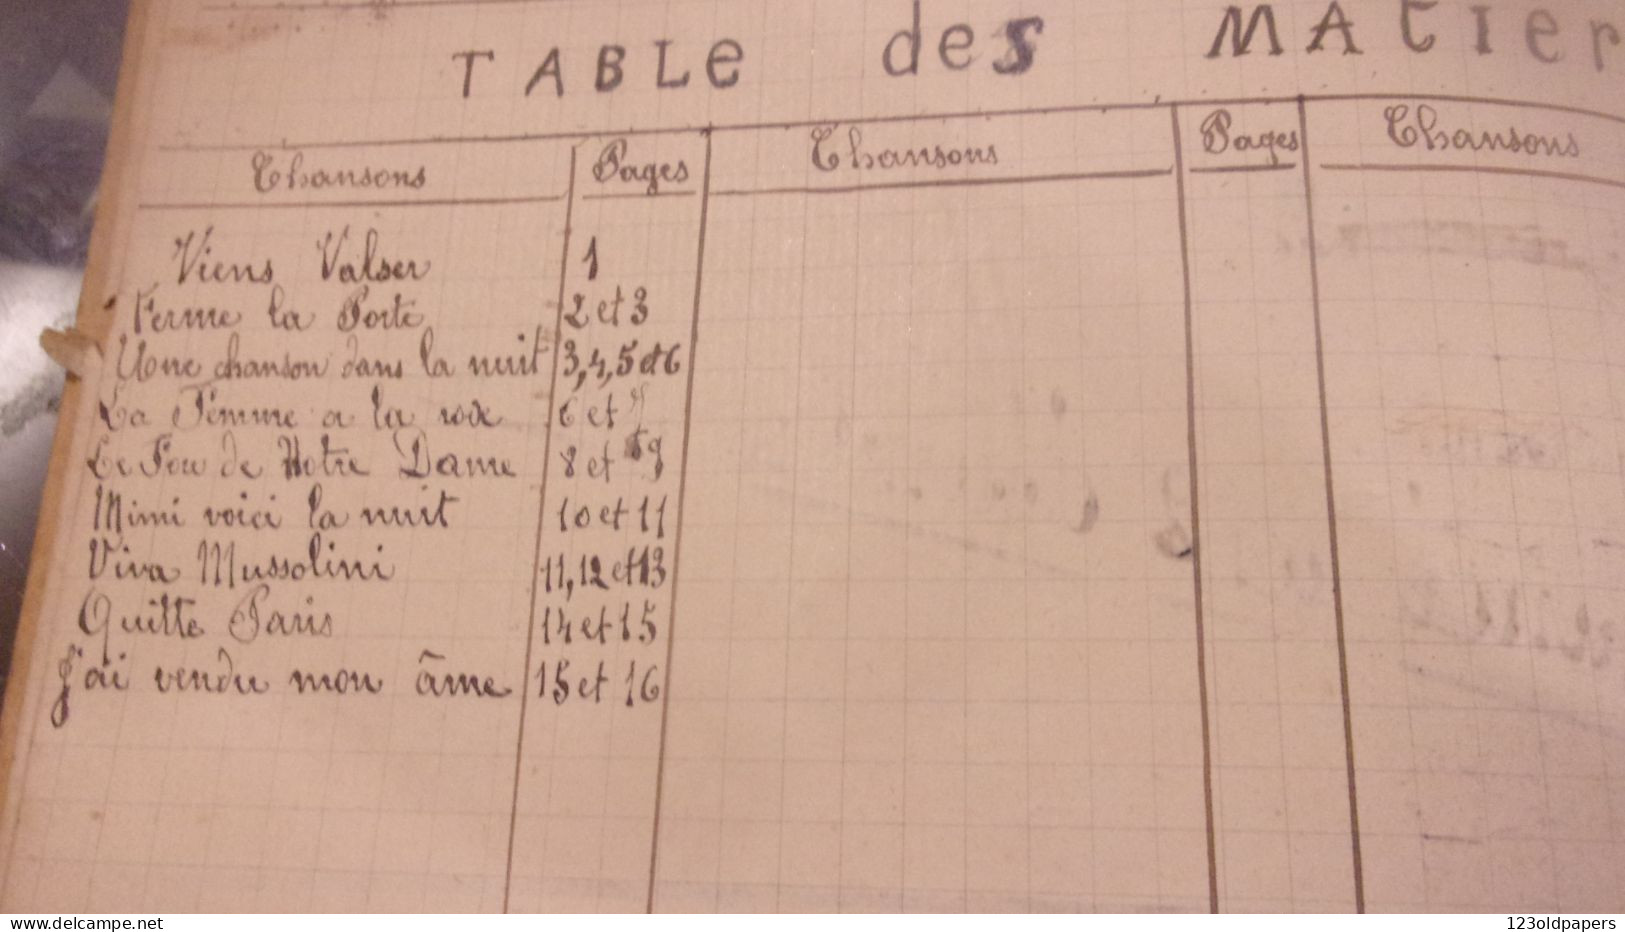 TABLe des MAtier
Chansons Pages Chansons Pages Chansons
Viens Valser 1
Ferme la Porte 2 et 3
Une chanson dans la nuit 3, 4, 5 et 6
La Femme a la rose 6 et 7
Le Fou de Notre Dame 8 et 9
Mimi voici la nuit 10 et 11
Viva Mussolini 11, 12 et 13
Quitte Paris 14 et 15
J'ai vendu mon âme 15 et 16
delcampe.net
123oldpapers